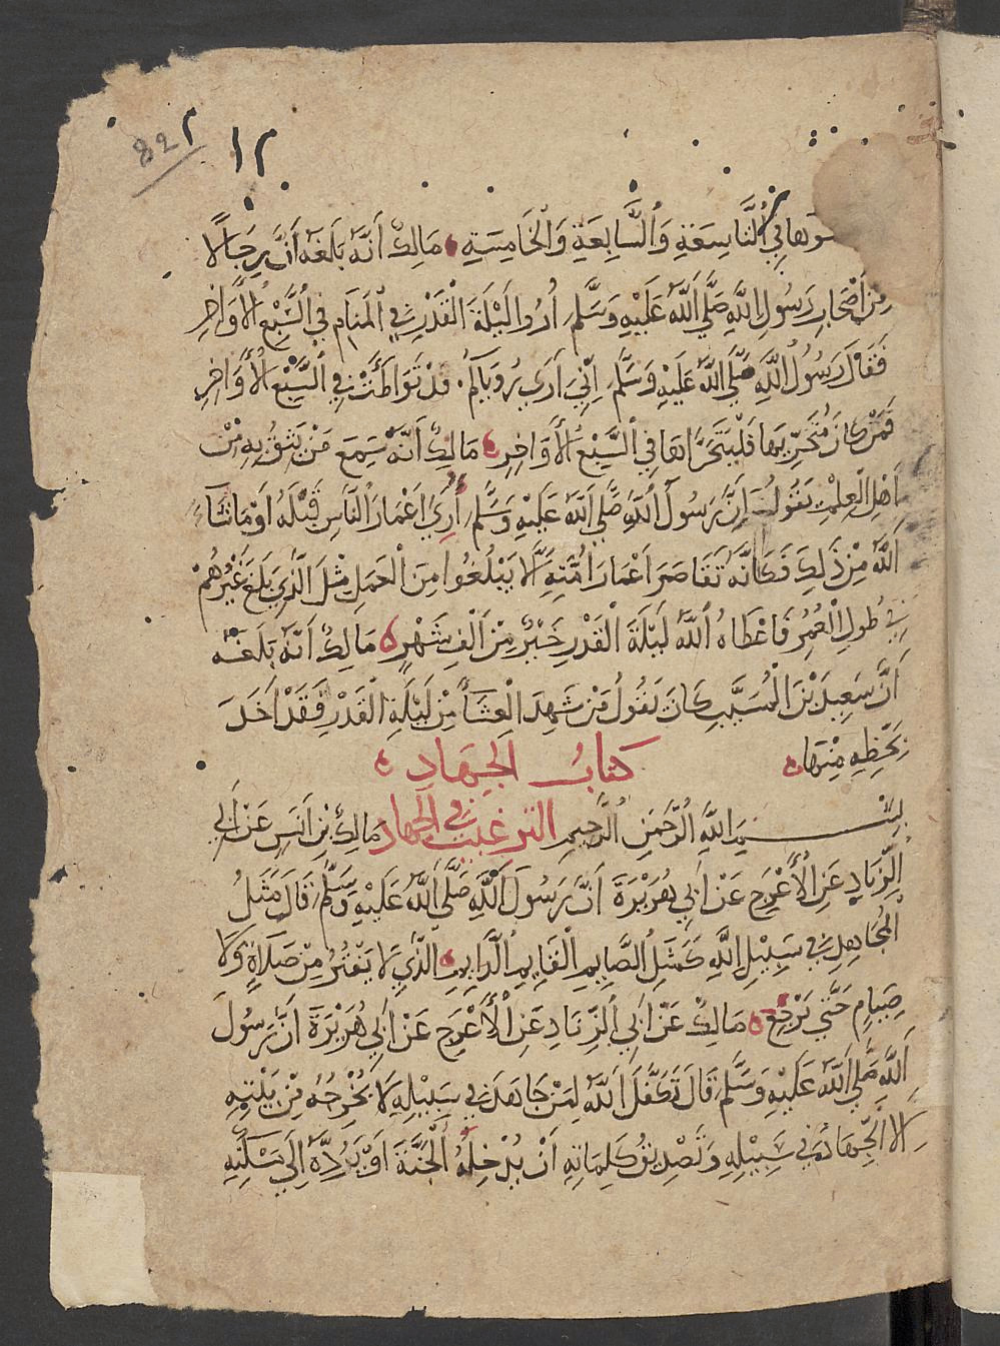 ١٢
822
ـوها في التَّاسِعَةِ وَالسَّابِعَةِ وَالْخَامِسَةِ ۵ مَالِكٌ أَنَّهُ بَلَغَهُ أَنَّ رِجَالًا
مِنْ أَصْحَابِ رَسُولِ اللَّهِ صَلَّى اللَّهُ عَلَيْهِ وَسَلَّمَ أُرُوا لَيْلَةَ الْقَدْرِ فِي الْمَنَامِ فِي السَّبْعِ الْأَوَاخِرِ
فَقَالَ رَسُولُ اللَّهِ صَلَّى اللَّهُ عَلَيْهِ وَسَلَّمَ إِنِّي أَرَى رُويَاكُمْ قَدْ تَوَاطَأَتْ فِي السَّبْعِ الْأَوَاخِرِ
فَمَنْ كَانَ مُتَحَرِّيهَا فَلْيَتَحَرَّاهَا فِي السَّبْعِ الْأَوَاخِرِ ۵ مَالِكٌ أَنَّهُ سَمِعَ مَنْ يَثِقُ بِهِ مِنْ
أَهْلِ الْعِلْمِ يَقُولُ إِنَّ رَسُولَ اللَّهِ صَلَّى اللَّهُ عَلَيْهِ وَسَلَّمَ أُرِيَ أَعْمَارَ النَّاسِ قَبْلَهُ أَوْ مَا شَآءَ
اللَّهُ مِنْ ذَلِكَ فَكَأَنَّهُ تَقَاصَرَ أَعْمَارَ أُمَّتِهِ أَلَّا يَبْلُغُوا مِنَ الْعَمَلِ مِثْلَ الَّذِي بَلَغَ غَيْرُهُمْ
فِي طُولِ الْعُمُرِ فَأَعْطَاهُ اللَّهُ لَيْلَةَ الْقَدْرِ خَيْرٌ مِنْ أَلْفِ شَهْرٍ ۵ مَالِكٌ أَنَّهُ بَلَغَهُ
أَنَّ سَعِيدَ بْنَ الْمُسَيَّبِ كَانَ يَقُولُ مَنْ شَهِدَ الْعِشَآءَ مِنْ لَيْلَةِ الْقَدْرِ فَقَدْ أَخَذَ
بِحَظِّهِ مِنْهَا ۵ كتابُ الجِهَادِ ۵
بِسْمِ اللَّهِ الرَّحْمَنِ الرَّحِيمِ الترغيب في الجهاد مَالِكُ بْنُ أَنَسٍ عَنْ أَبِي
الزِّنَادِ عَنِ الْأَعْرَجِ عَنْ أَبِي هُرَيْرَةَ أَنَّ رَسُولَ اللَّهِ صَلَّى اللَّهُ عَلَيْهِ وَسَلَّمَ قَالَ مَثَلُ
الْمُجَاهِدِ فِي سَبِيلِ اللَّهِ كَمَثَلِ الصَّايِمِ الْقَايِمِ الدَّايِمِ الَّذِي لَا يَفْتُرُ مِنْ صَلَاةٍ وَلَا
صِيَامٍ حَتَّى يَرْجِعَ ۵ مَالِكٌ عَنْ أَبِي الزِّنَادِ عَنِ الْأَعْرَجِ عَنْ أَبِي هُرَيْرَةَ أَنَّ رَسُولَ
اللَّهِ صَلَّى اللَّهُ عَلَيْهِ وَسَلَّمَ قَالَ تَكَفَّلَ اللَّهُ لِمَنْ جَاهَدَ فِي سَبِيلِهِ لَا يُخْرِجُهُ مِنْ بَيْتِهِ
إِلَّا الْجِهَادُ فِي سَبِيلِهِ وَتَصْدِيقُ كَلِمَاتِهِ أَنْ يُدْخِلَهُ الْجَنَّةَ أَوْ يَرُدَّهُ إِلَى مَسْكَنِهِ